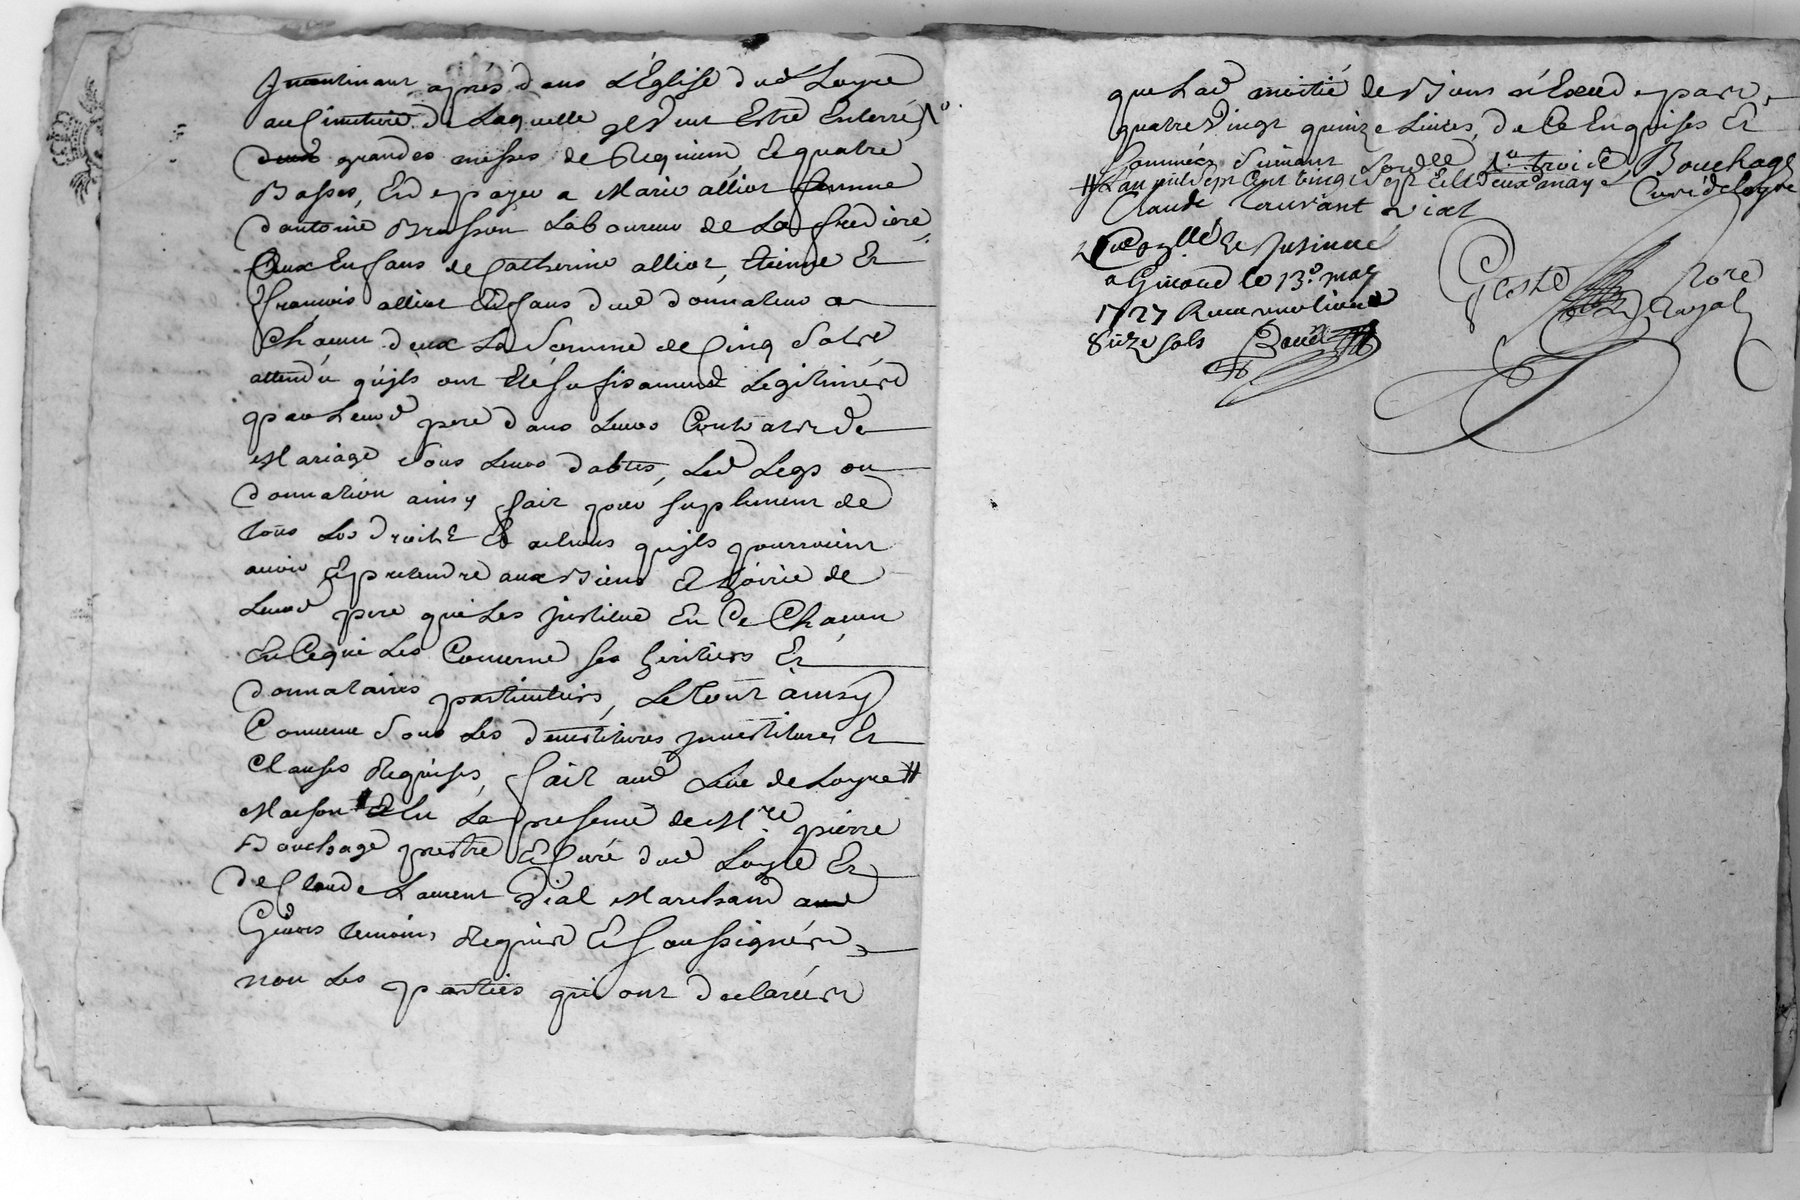 après dans L'Eglise dud Loyre
au Cimetiere de Laquelle il veut Estre Enterré, 1º.
deux grandes messes de Requiem, et quatre
Basses, Et de payer a Marie allior femme
d'antoine Brosson Laboureur de La
Aux Enfans de Catherine allior, Etienne Et
françois allior Enfans dud donnateur a
Chacun d'eux La Somme de Cinq Sols
attendu qu'ils ont Eté sufisament Legitimés
par Leurd pere dans Leurs Contrats de
Mariage sous Leurs dabtes, Led Legs ou
donnation ainsy fait pour suplement de
tous Les droits Et actions qu'ils pourroient
avoir Et pretendre aux Biens Et hoirie de
Leurd pere qui Les institue En Ce Chacun
En Ce qui Les Concerne ses heritiers Et
donnataires particuliers, Le tout ainsy
Convenu sous Les demétitures investitures Et
Clauses Requises, fait aud Lieu de Loyre #
Maison En La presence de Mre pierre
Bouchage prestre Et Curé dud Loyre Et
de Claude Laurent Vial Marchand
Givors temoins Requis Et soussignés,
non Les parties qui ont declaré
que Lad moitié de Biens n'Exede pas
quatre Vingt quinze Livres, de Ce Enquises Et
Sommées Suivant 1º. troi Bouchage
# L'an mil sept Cent vingt sept Et Le deux may Curé de Loyre
Claude Lourant vial
Et Insinué
a Givord le 13º. may
1727 Receu une livre
Seize sols
Geste Nore
Royal